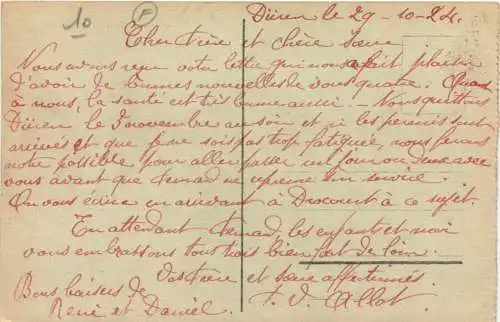 10
F
Düren le 29-10-24.
Cher frère et chère sœur
Nous avons reçu votre lettre qui nous a fait plaisir
d'avoir de bonnes nouvelles de vous quatre. Quant
à nous, la santé est très bonne aussi. Nous quittons
Düren le 3 novembre au soir et si les permis sont
arrivés et que je ne sois pas trop fatiguée, nous ferons
notre possible pour aller passer un jour ou deux avec
vous avant que Fernand ne reprenne son service.
On vous écrira en arrivant à Drocourt à ce sujet.
En attendant Fernand, les enfants et moi
vous embrassons tout trois bien fort de loin.
Vos frère et sœur affectionnés.
Bons baisers de
René et Daniel.
F. V. Allot.